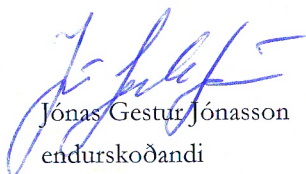 Jónas Gestur Jónasson
endurskoðandi